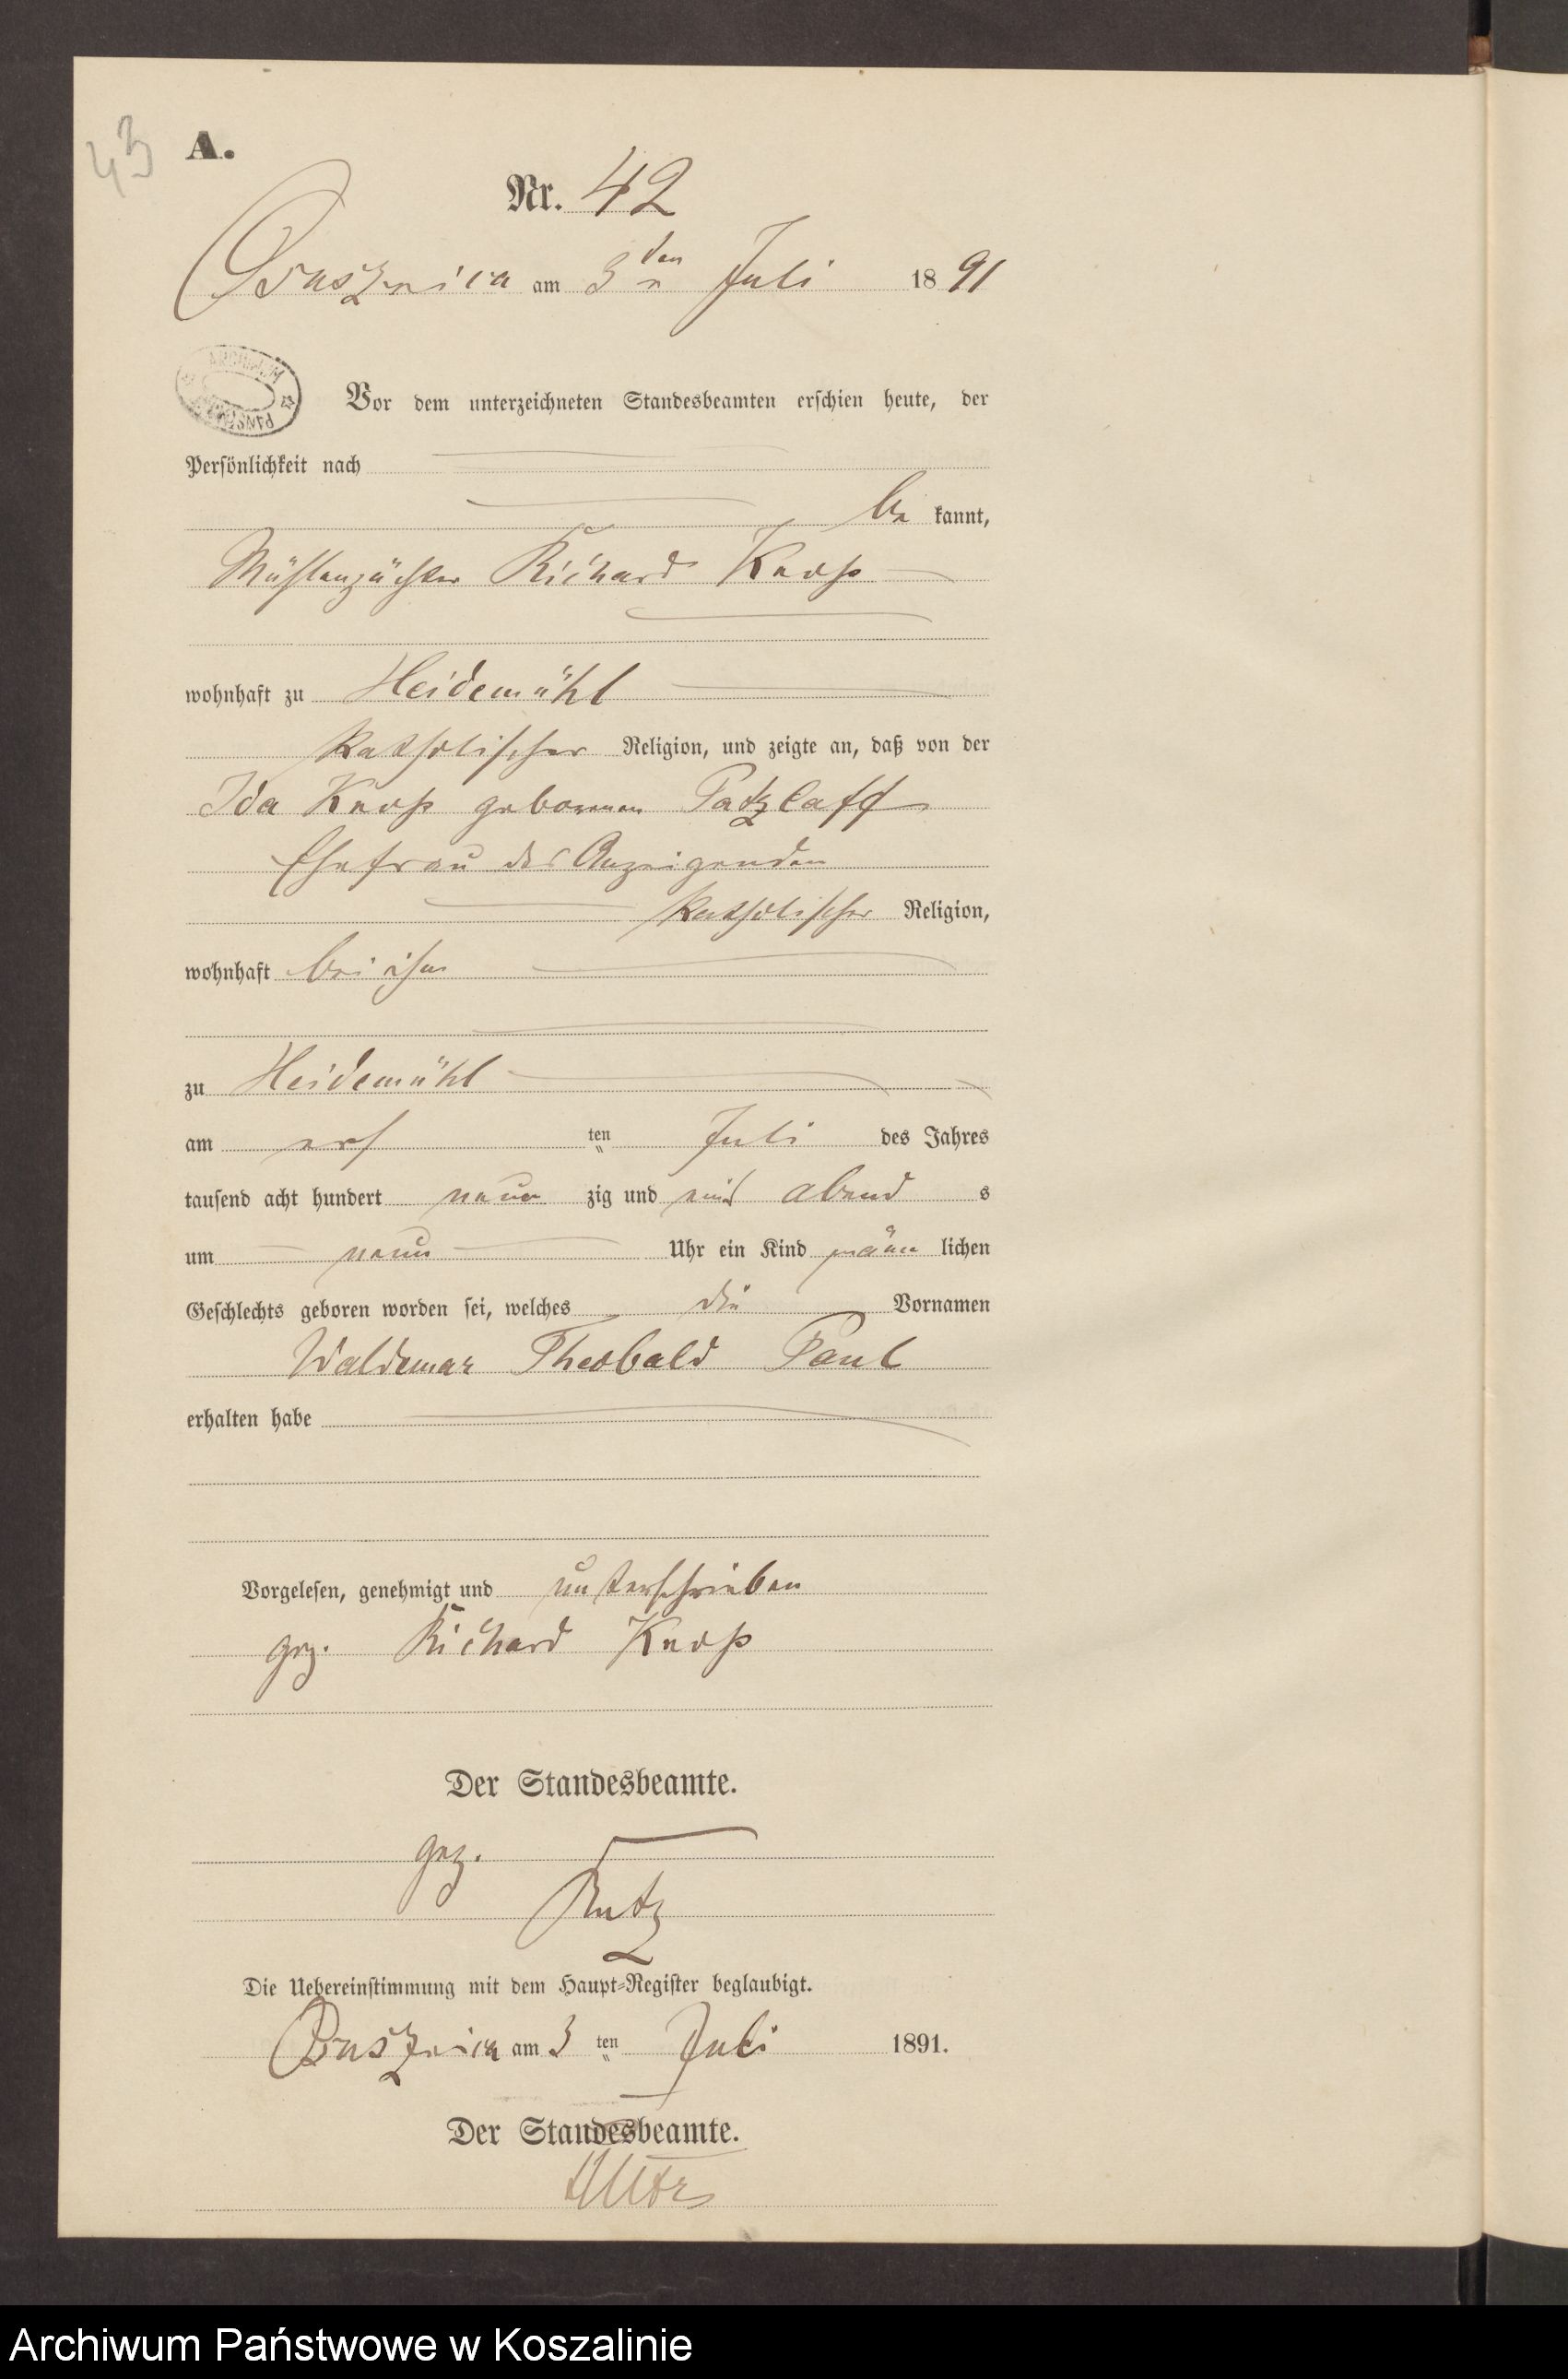 43
A.
Nr. 42
am 3 ten Juli 1891
ARCHIWUM
Vor dem unterzeichneten Standesbeamten erschien heute, der
Persönlichkeit nach
be kannt,
Mühlenpächter Richard Knop
wohnhaft zu Heidemühl
katholischer Religion, und zeigte an, daß von der
Ida Knop geborenen Patzlaff
Ehefrau des Anzeigenden
katholischer Religion,
wohnhaft bei ihm
zu Heidemühl
am ers ten Juli des Jahres
tausend acht hundert neun zig und eins abend s
um neun Uhr ein Kind männ lichen
Geschlechts geboren worden sei, welches die Vornamen
Waldemar Theobald Paul
erhalten habe
Vorgelesen, genehmigt und unterschrieben
gez. Richard Knop
Der Standesbeamte.
gez.
Die Uebereinstimmung mit dem Haupt-Register beglaubigt.
am 3 ten Juli 1891.
Der Standesbeamte.
Archiwum Państwowe w Koszalinie